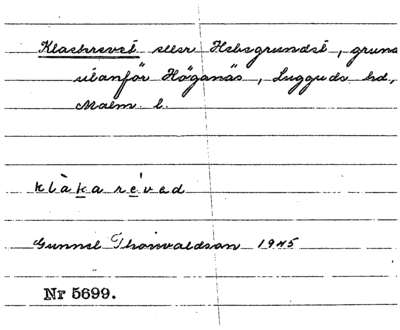 Klackrevet eller Hakegrundet, grund
utanför Höganäs, Luggude hd,
Malm. l.
klàka réved
Gunnel Thorvaldson 1945
Nr 5699.